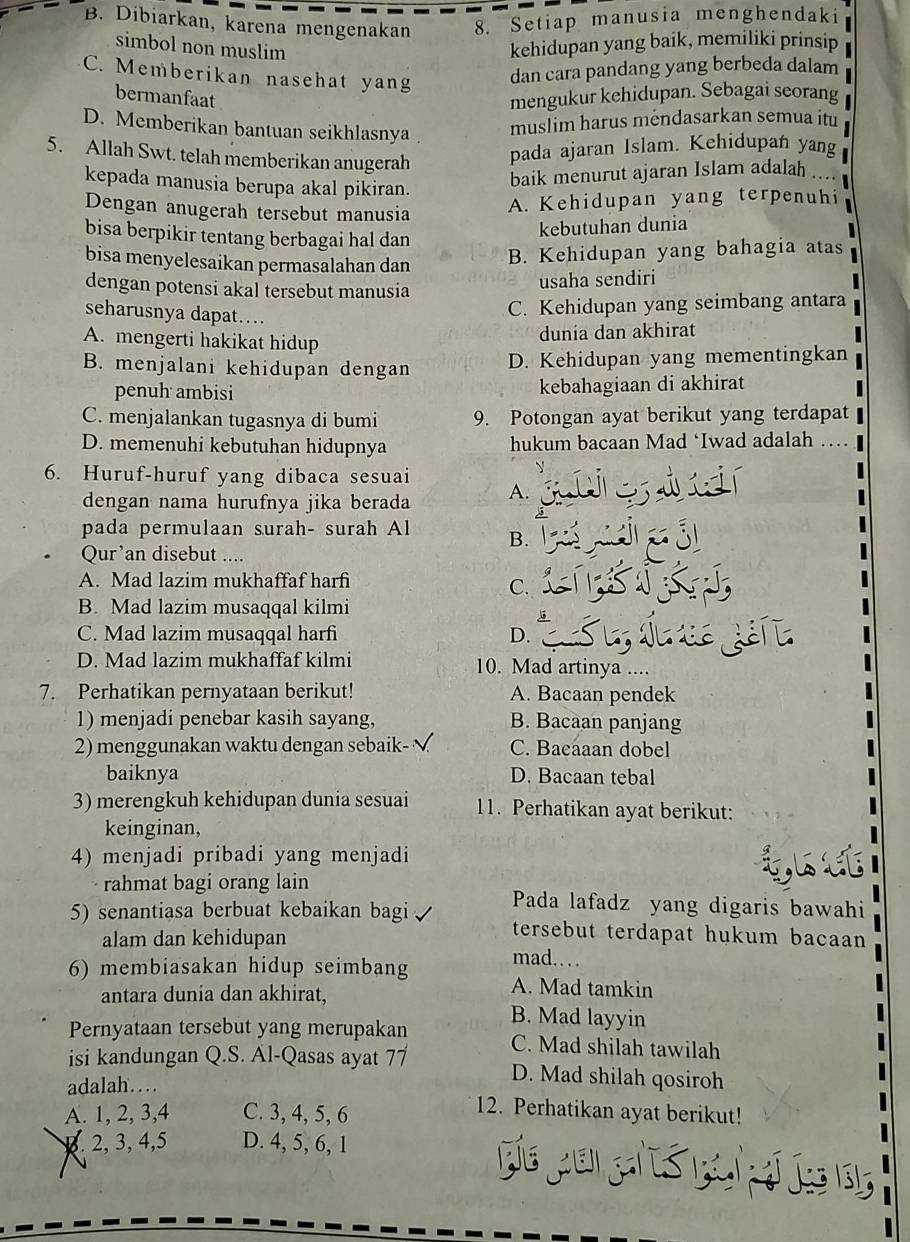 B. Dibiarkan, karena mengenakan
simbol non muslim
C. Memberikan nasehat yang
bermanfaat
D. Memberikan bantuan seikhlasnya
5. Allah Swt. telah memberikan anugerah
kepada manusia berupa akal pikiran.
Dengan anugerah tersebut manusia
bisa berpikir tentang berbagai hal dan
bisa menyelesaikan permasalahan dan
dengan potensi akal tersebut manusia
seharusnya dapat....
A. mengerti hakikat hidup
B. menjalani kehidupan dengan
penuh ambisi
C. menjalankan tugasnya di bumi
D. memenuhi kebutuhan hidupnya
6. Huruf-huruf yang dibaca sesuai
dengan nama hurufnya jika berada
pada permulaan surah- surah Al
Qur'an disebut ....
A. Mad lazim mukhaffaf harfi
B. Mad lazim musaqqal kilmi
C. Mad lazim musaqqal harfi
D. Mad lazim mukhaffaf kilmi
7. Perhatikan pernyataan berikut!
1) menjadi penebar kasih sayang,
2) menggunakan waktu dengan sebaik-
baiknya
3) merengkuh kehidupan dunia sesuai
keinginan,
4) menjadi pribadi yang menjadi
rahmat bagi orang lain
5) senantiasa berbuat kebaikan bagi
alam dan kehidupan
6) membiasakan hidup seimbang
antara dunia dan akhirat,
Pernyataan tersebut yang merupakan
isi kandungan Q.S. Al-Qasas ayat 77
adalah....
A. 1, 2, 3,4 C. 3, 4, 5, 6
B. 2, 3, 4,5 D. 4, 5, 6, 1
8. Setiap manusia menghendaki
kehidupan yang baik, memiliki prinsip
dan cara pandang yang berbeda dalam
mengukur kehidupan. Sebagai seorang
muslim harus mendasarkan semua itu
pada ajaran Islam. Kehidupan yang
baik menurut ajaran Islam adalah ....
A. Kehidupan yang terpenuhi
kebutuhan dunia
B. Kehidupan yang bahagia atas
usaha sendiri
C. Kehidupan yang seimbang antara
dunia dan akhirat
D. Kehidupan yang mementingkan
kebahagiaan di akhirat
9. Potongan ayat berikut yang terdapat
hukum bacaan Mad 'Iwad adalah ....
A. اَلْحَمْدُ لِلّٰهِ رَبِّ الْعٰلَمِيْنَۙ
B. اِنَّ مَعَ الْعُسْرِ يُسْرًاۗ
C. وَلَمْ يَكُنْ لَّهٗ كُفُوًا اَحَدٌ
D. مَآ اَغْنٰى عَنْهُ مَالُهٗ وَمَا كَسَبَۗ
10. Mad artinya ....
A. Bacaan pendek
B. Bacaan panjang
C. Bacaaan dobel
D. Bacaan tebal
11. Perhatikan ayat berikut:
فَاُمُّهٗ هَاوِيَةٌ
Pada lafadz yang digaris bawahi
tersebut terdapat hukum bacaan
mad....
A. Mad tamkin
B. Mad layyin
C. Mad shilah tawilah
D. Mad shilah qosiroh
12. Perhatikan ayat berikut!
وَاِذَا قِيْلَ لَهُمْ اٰمِنُوْا كَمَآ اٰمَنَ النَّاسُ قَالُوْٓا